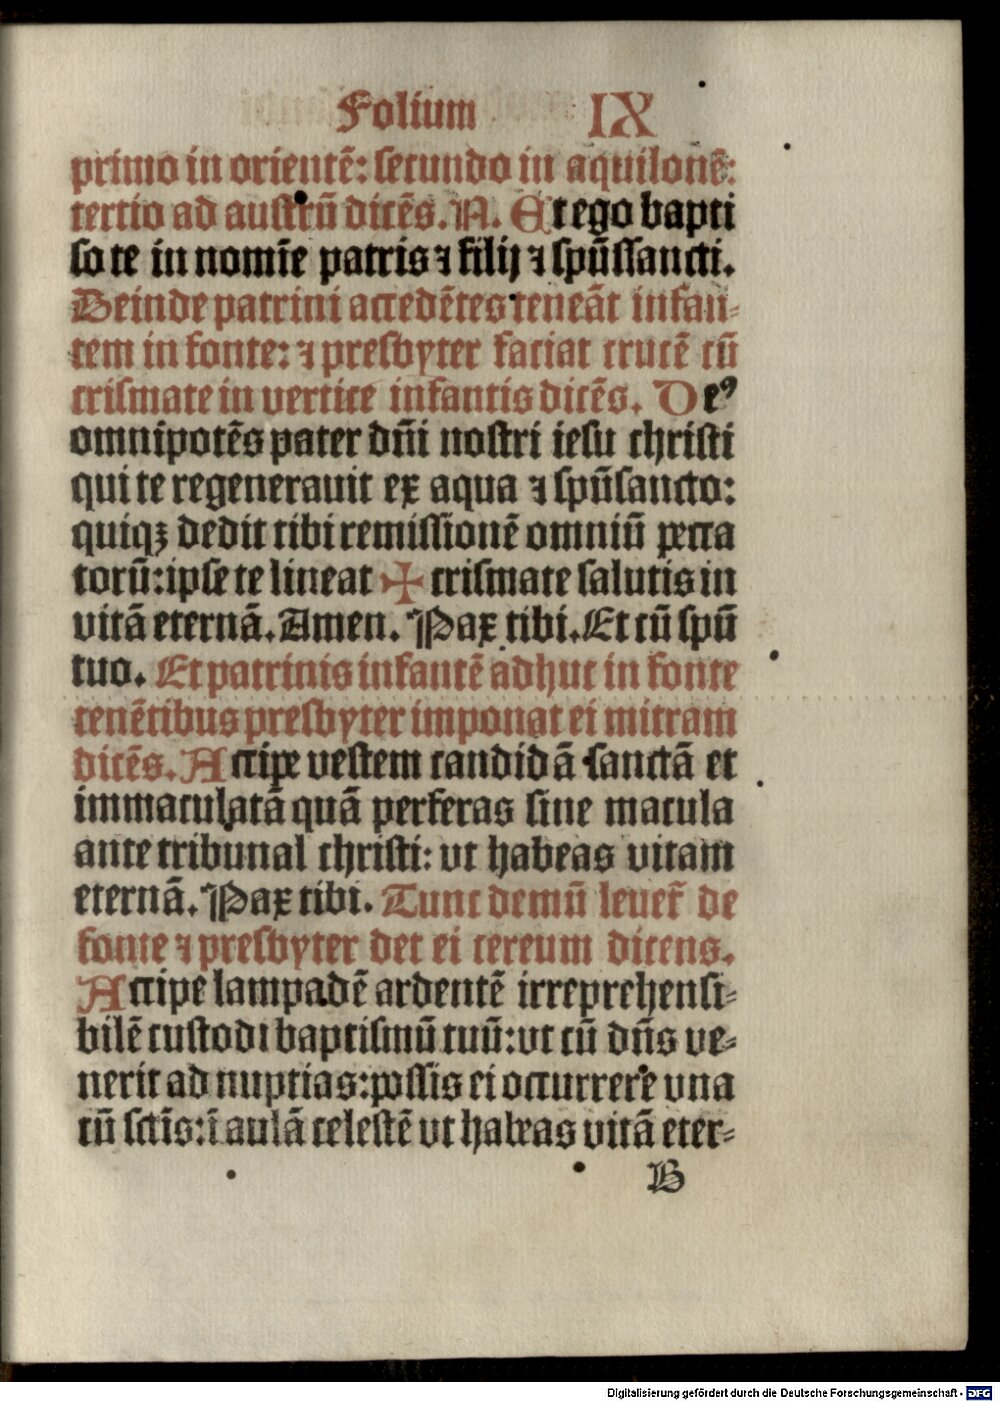 Folium IX
primo in orientē: secundo in aquilonē:
tertio ad austrū dicēs. N. Et ego bapti
so te in nomīe patris ⁊ filij ⁊ spūssancti.
Deinde patrini accedētes teneāt infan⸗
tem in fonte: ⁊ presbyter faciat crucē cū
crismate in vertice infantis dicēs. Deꝰ
omnipotēs pater dn̄i nostri iesu christi
qui te regenerauit ex aqua ⁊ spūsancto:
quiqꝫ dedit tibi remissionē omniū pecca
torū: ipse te lineat ✠ crismate salutis in
vitā eternā. Amen. Pax tibi. Et cū spū
tuo. Et patrinis infantē adhuc in fonte
tenētibus presbyter imponat ei mitram
dicēs. Accipe vestem candidā sanctā et
immaculatā quā perferas sine macula
ante tribunal christi: vt habeas vitam
eternā. Pax tibi. Tunc demū leuet̄ de
fonte ⁊ presbyter det ei cereum dicens.
Accipe lampadē ardentē irreprehensi⸗
bilē custodi baptismū tuū: vt cū dn̄s ve⸗
nerit ad nuptias: possis ei occurrere vna
cū sctīs: ī aulā celestē vt habeas vitā eter⸗
B
Digitalisierung gefördert durch die Deutsche Forschungsgemeinschaft - DFG